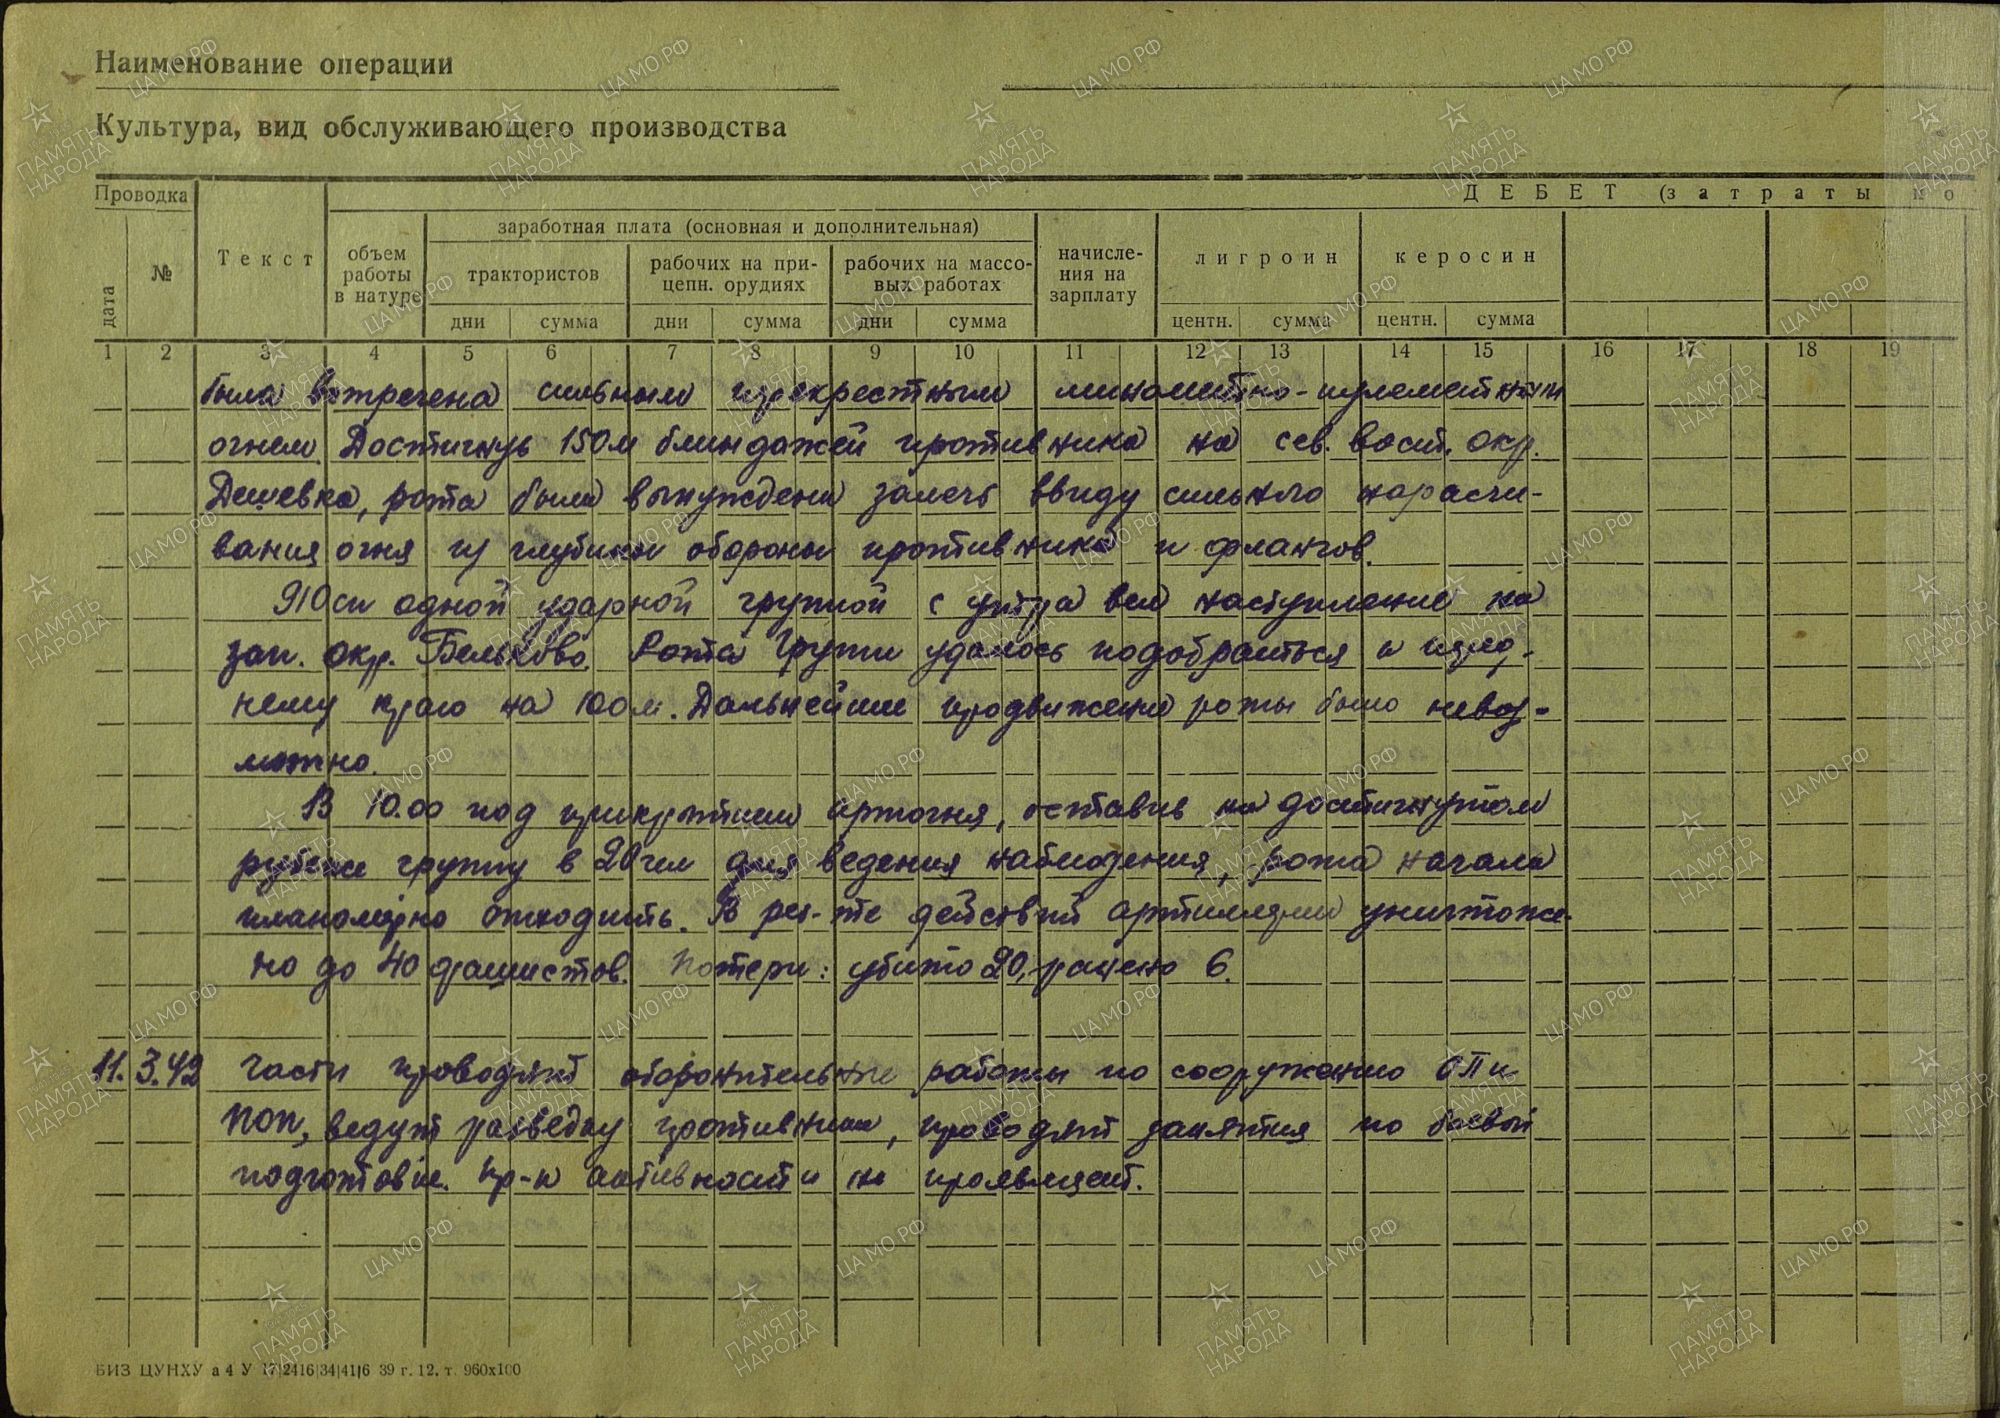 Наименование операции
Культура, вид обслуживающего производства
Проводка
ДЕБЕТ (затраты по
дата
№
Текст
объем работы в натуре
заработная плата (основная и дополнительная)
трактористов
рабочих на прицепн. орудиях
рабочих на массовых работах
начисления на зарплату
лигроин
керосин
дни сумма дни сумма дни сумма центн. сумма центн. сумма
1 2 3 4 5 6 7 8 9 10 11 12 13 14 15 16 17 18 19
была встречена сильным перекрестным минометно-пулеметным
огнем. Достигнув 150м блиндажей противника на сев. вост. окр.
Дешевка, рота была вынуждена залечь ввиду сильного нарасчи-
вания огня из глубины обороны противника и флангов.
910сп одной ударной группой с утра вел наступление на
зап. окр. Бельково. Рота группы удалось подобраться к перед-
нему краю на 100м. Дальнейшее продвижение роты было невоз-
можно.
В 10.00 под прикрытием артогня, оставив на достигнутом
рубеже группу в 20чел для ведения наблюдения, рота начала
планомерно отходить. В рез-те действий артиллерии уничтоже-
но до 40 фашистов. Потери: убито 20, ранено 6.
11. 3.42 Части проводят оборонительные работы по сооружению ОП и
ПОП, ведут разведку противника, проводят занятия по боевой
подготовке. Пр-к активности не проявляет.
БИЗ ЦУНХУ а 4 У 17|2416|34|41|6 39 г. 12. т. 960х100
ПАМЯТЬ НАРОДА
ЦАМО.РФ